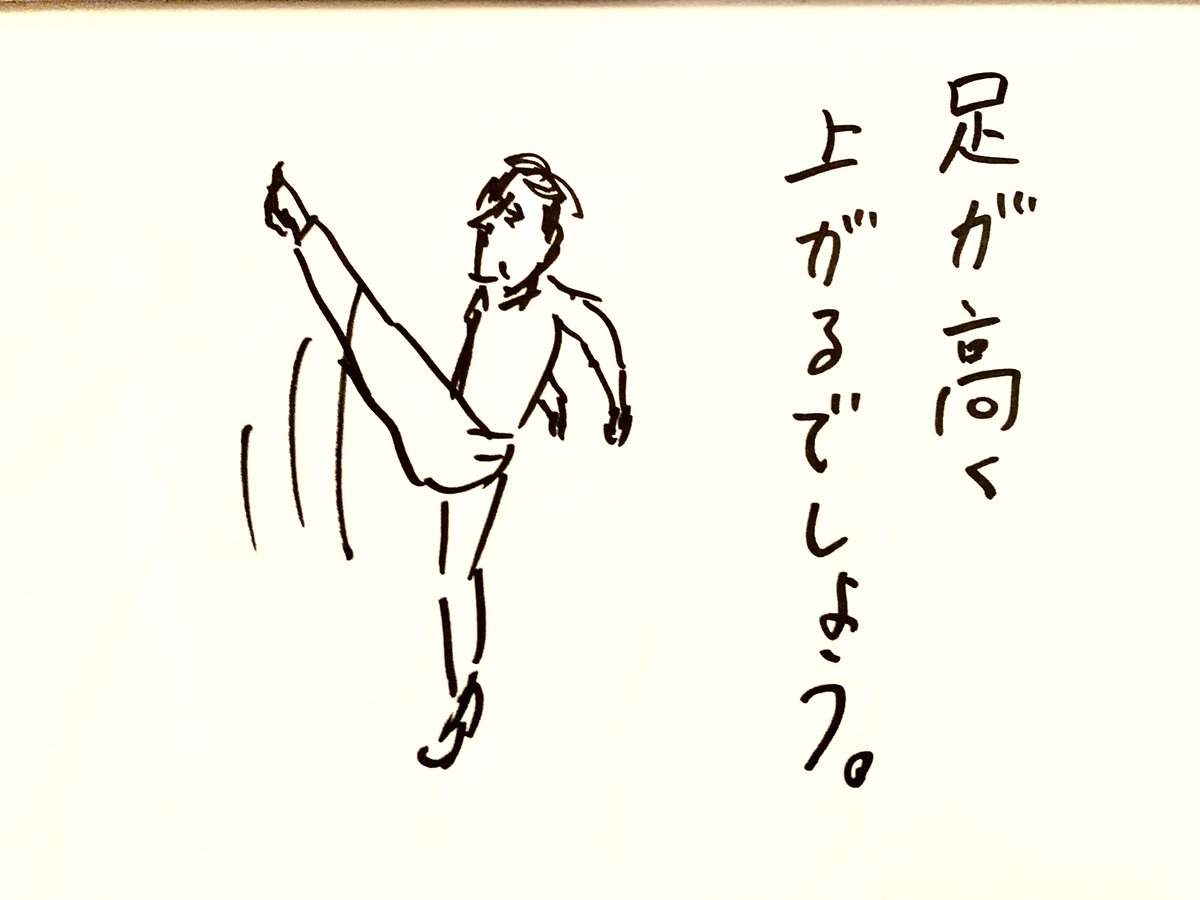 足が高く
上がるでしょう。